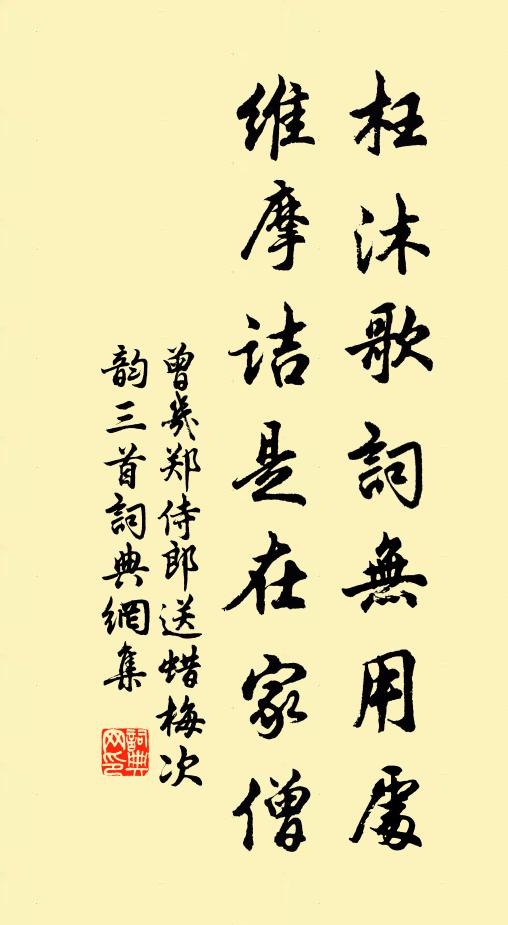 枉沐歌詞無用處
維摩詰是在家僧
曾幾郑侍郎送蜡梅次
韵三首詞典網集
詞典网印